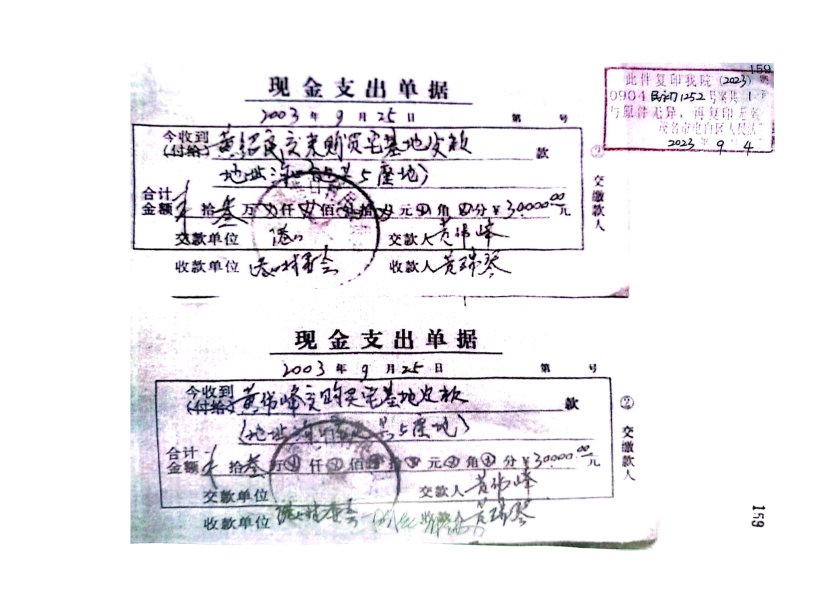 159
此件复印我院(2023)粤
0904民初1252号案共1页
与原件无异，再复印无效
茂名市电白区人民法
2023年9 4
现金支出单据
2003年9月25日 第 号
今收到
(付给) 黄绍良交来购买宅基地款 款
地址: 共5座地)
合计
金额 拾叁万 仟 佰 拾 元 角 分 ¥30000.00元
交款单位 港口 交款人 黄伟峰
收款单位 港口村委会 收款人 黄瑞琴
② 交缴款人
现金支出单据
2003年9月25日 第 号
今收到
(付给) 黄伟峰交购买宅基地款 款
(地址: 共5座地)
合计
金额 拾叁万 仟 佰 拾 元 角 分 ¥30000.00元
交款单位 交款人 黄伟峰
收款单位 港口村委会 黄瑞琴
② 交缴款人
159